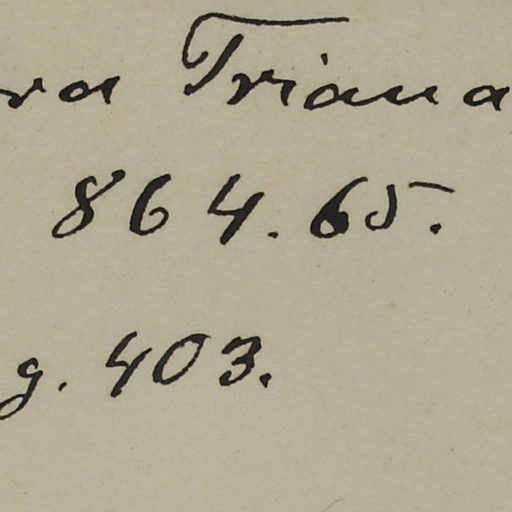 ra Triana
864.65.
g. 403.